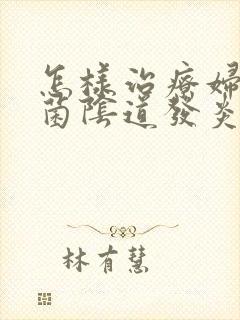 怎樣治療婦
菌陰道發炎
林有慧